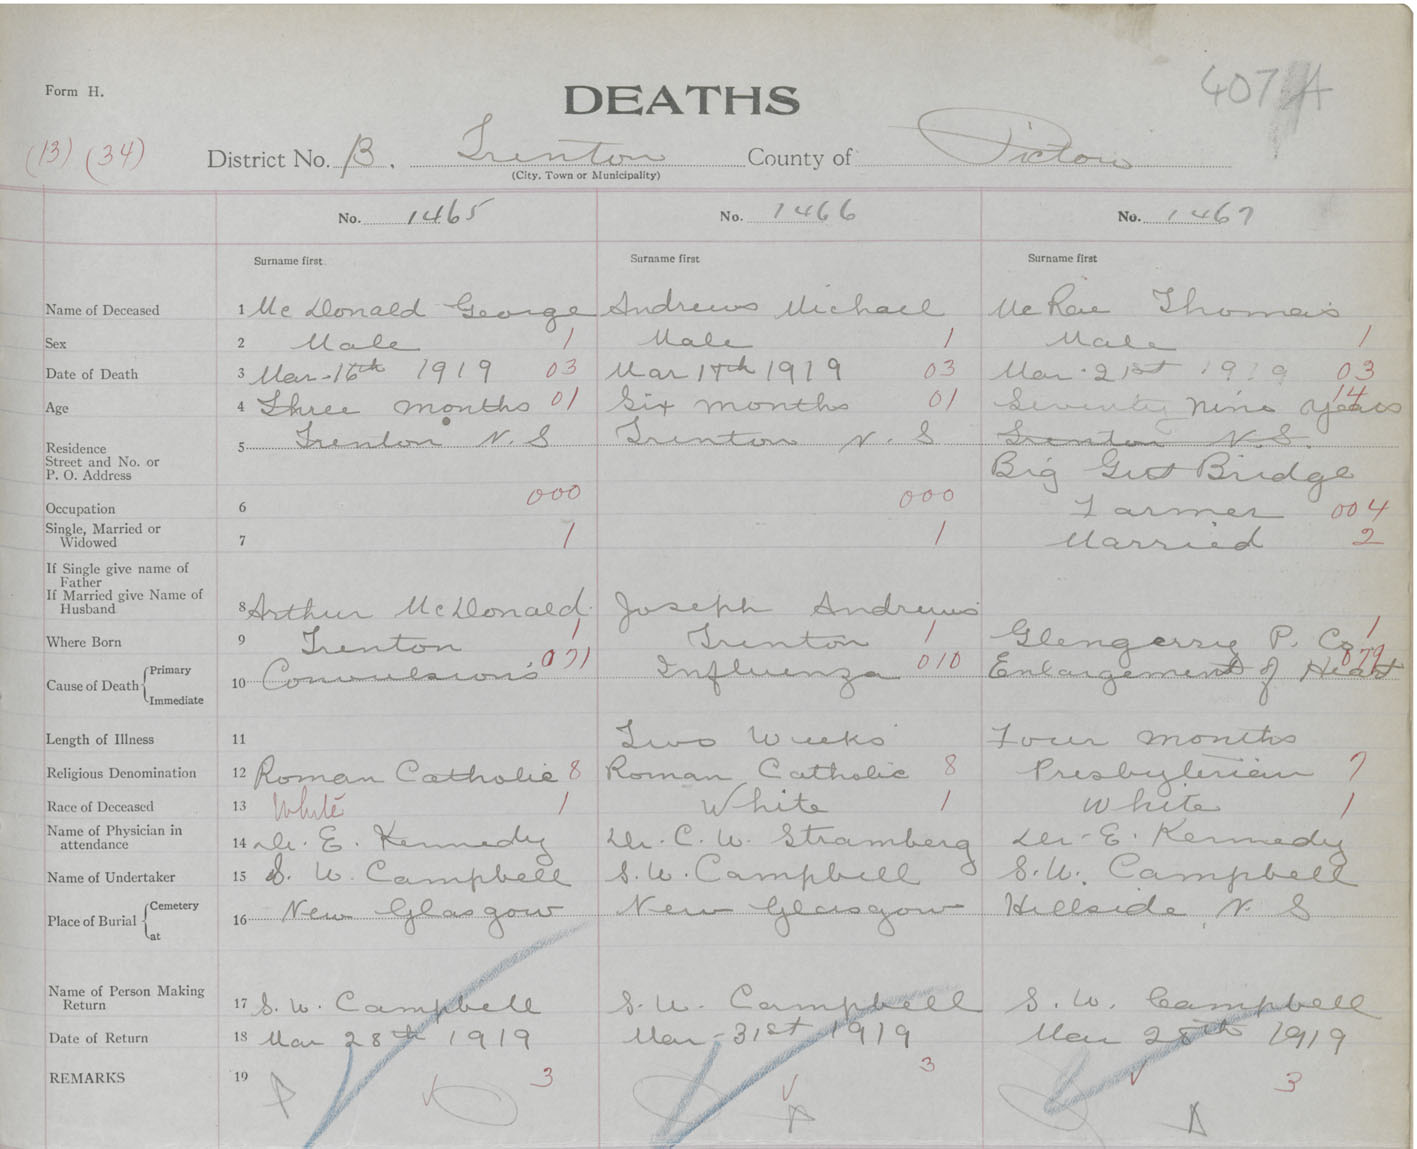 Form H.
DEATHS
407 A
(13) (34)
District No. B. Trenton County of Pictou
(City, Town or Municipality)
No. 1465 No. 1466 No. 1467
Surname first Surname first Surname first
Name of Deceased 1 McDonald George Andrews Michael McRae Thomas
Sex 2 Male 1 Male 1 Male 1
Date of Death 3 Mar-16th 1919 03 Mar 17th 1919 03 Mar-21st 1919 03
Age 4 Three months 01 Six months 01 Seventy nine years 14
Residence 5 Trenton N.S Trenton N.S Trenton N.S.
Street and No. or
P. O. Address Big Gut Bridge
Occupation 6 000 000 Farmer 004
Single, Married or
Widowed 7 1 1 Married 2
If Single give name of
Father
If Married give Name of
Husband 8 Arthur McDonald Joseph Andrews
Where Born 9 Trenton 1 Trenton 1 Glengerry P. Co 1
Cause of Death Primary
Immediate 10 Convulsions 071 Influenza 010 Enlargement of Heart 079
Length of Illness 11 Two Weeks Four months
Religious Denomination 12 Roman Catholic 8 Roman Catholic 8 Presbyterian 7
Race of Deceased 13 White 1 White 1 White 1
Name of Physician in
attendance 14 Dr. E. Kennedy Dr. C. W. Stramberg Dr-E. Kennedy
Name of Undertaker 15 S. W. Campbell S. W. Campbell S. W. Campbell
Place of Burial Cemetery
at 16 New Glasgow New Glasgow Hillside N.S
Name of Person Making
Return 17 S. W. Campbell S. W. Campbell S. W. Campbell
Date of Return 18 Mar 28th 1919 Mar-31st 1919 Mar 28th 1919
REMARKS 19 3 3 3